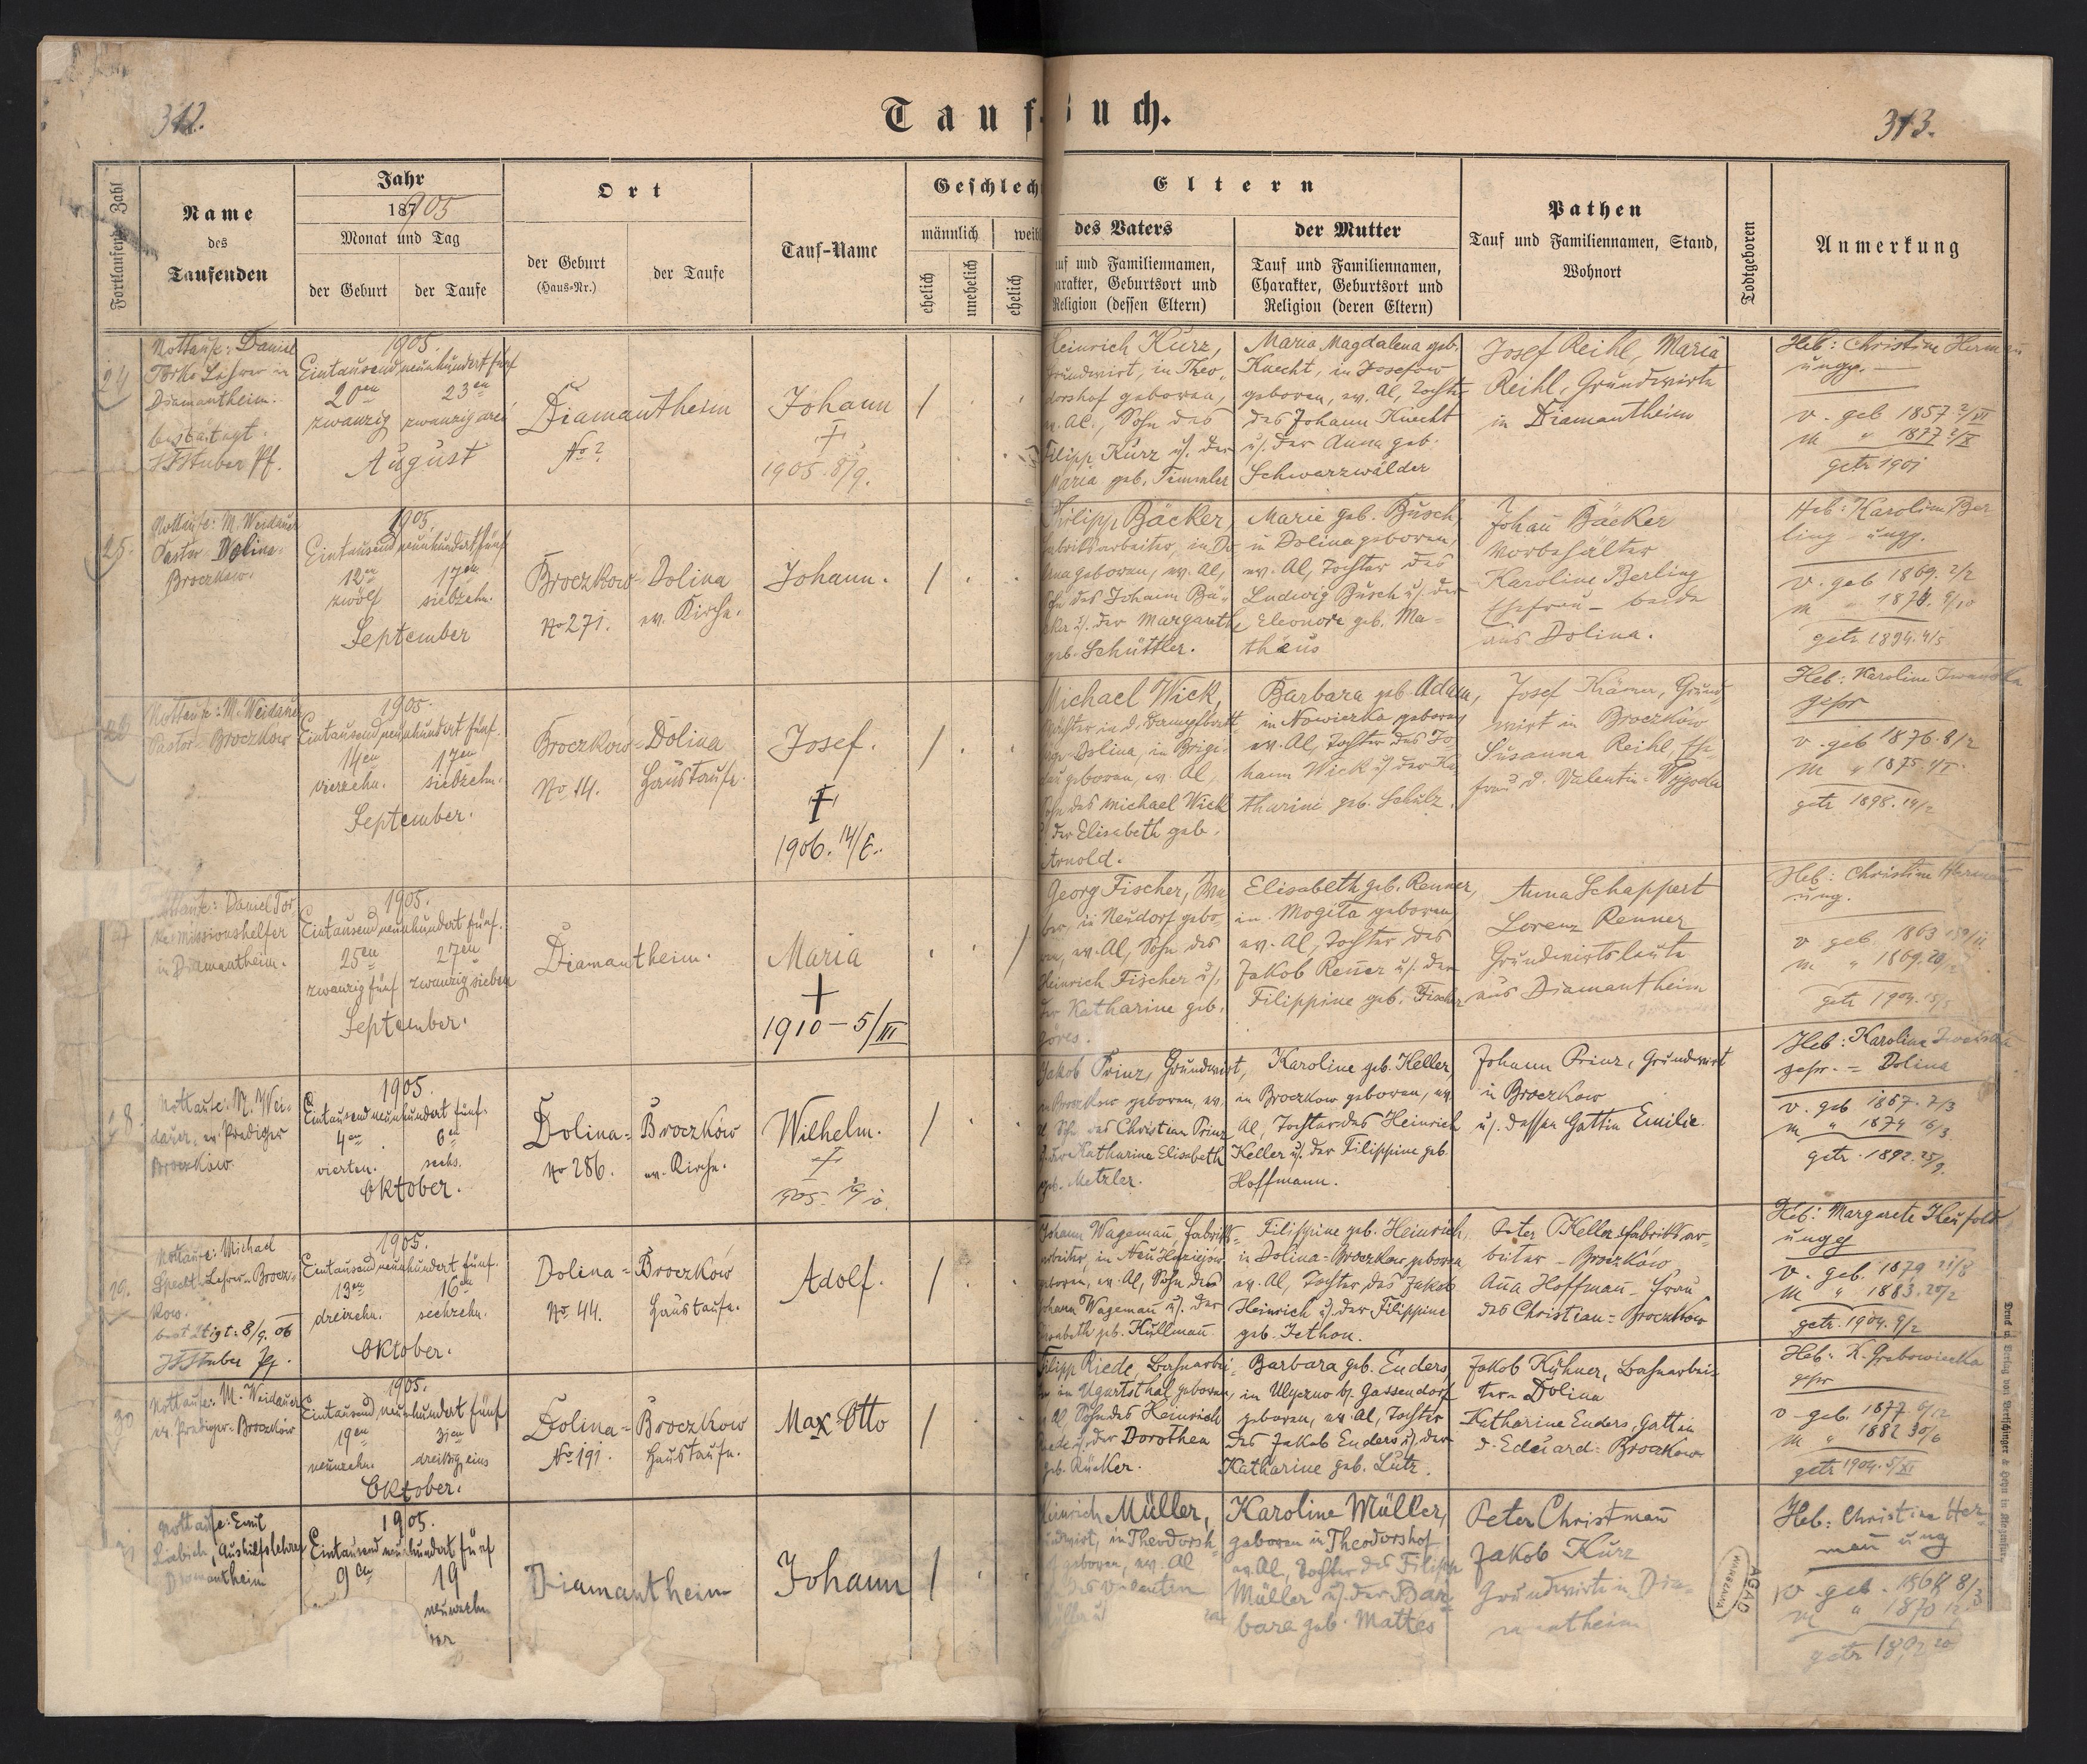 312.
Tauf-Buch.
313.
Fortlaufende Zahl
Name
des
Taufenden
Jahr
187 905
Monat und Tag
der Geburt
der Taufe
Ort
der Geburt
(Haus-Nr.)
der Taufe
Tauf-Name
Geschlech
männlich
weib
ehelich
unehelich
ehelich
Eltern
des Vaters
auf und Familiennamen,
arakter, Geburtsort und
Religion (dessen Eltern)
der Mutter
Tauf und Familiennamen,
Charakter, Geburtsort und
Religion (deren Eltern)
Pathen
Tauf und Familiennamen, Stand,
Wohnort
Todtgeboren
Anmerkung
24
Nottaufe: Daniel
Lehrer in
Diamantheim.
bestätigt.
Stuber Pf.
1905.
Eintausendneunhundert fünf
20en 23en
zwanzig zwanzig drei
August
Diamantheim
No 2
Johann
1905. 8/9.
/
Heinrich Kurz,
Grundwirt, in Theo-
dorshof geboren,
ev. Al., Sohn des
Filipp Kurz u. der
Maria geb.
Maria Magdalena geb.
Knecht, in Josefow
geboren, ev. Al, Tochter
des Johann Knecht
u. der Anna geb.
Schwarzwälder
Josef Reihl, Maria
Reihl, Grundwirte
in Diamantheim
Heb: Christine Herman
ungepr.
v. geb 1857
m " 1877
getr 1901
25.
Nottaufe: M. Weidauer
Pastor Dolina-
Broczkow.
1905.
Eintausend neunhundert fünf
12en 17en
zwölf siebzehn.
September
Broczkow-Dolina
No 271. ev. Kirche.
Johann.
/
Philipp Bäcker
Fabriksarbeiter, in Do-
lina geboren, ev. Al,
Sohn des Johann Bä-
cker u. der Margarethe
geb. Schüttler.
Marie geb. Busch,
in Dolina geboren,
ev. Al, Tochter des
Ludwig Busch u. der
Eleonore geb. Ma-
thäus
Johan̄ Bäcker
Karoline Berling
Ehefrau - beide
aus Dolina.
Heb: Karoline Ber
ling ungp.
v. geb 1869. 2/2
m " 9/10
getr. 1894. 4/5
Nottaufe: M. Weidauer
Pastor - Broczkow
1905.
Eintausend neunhundert fünf.
14en 17en
vierzehn. siebzehn.
September.
Broczkow-Dolina
No 14. Haustaufe.
Josef.
1906. 14/6.
/
Michael Wick,
Dolina, in Brigi-
dau geboren, ev. Al,
Sohn des Michael Wick
der Elisabeth geb.
Arnold.
Barbara geb. Adam,
in Nowiczka geboren
ev. Al, Tochter des Jo-
hann Wick u. der Ka
tharine geb. Schulz.
Josef Krämer, Grund
wirt in Broczkow
Susanna Reihl, Ehe
frau d. Valentin - Wygoda
Heb: Karoline
gepr
v. geb 1876. 8/2
m " 1875.
getr 1898. 14/2
Nottaufe: Daniel Tor
ke Missionshelfer
in Diamantheim.
1905.
Eintausend neunhundert fünf.
25en 27en
zwanzig fünf zwanzig sieben
September.
Diamantheim.
Maria
1910 - 5/III
/
Georg Fischer,
ber, in Neudorf gebo
ren, ev. Al, Sohn des
Heinrich Fischer u.
der Katharine geb.
Göres.
Elisabeth geb. Renner,
in Mogila geboren
ev. Al, Tochter des
Jakob Rener u. der
Filippine geb. Fischer
Anna Schappert
Lorenz Renner
Grundwirtsleute
aus Diamantheim
Heb: Christine Herman
ung.
v. geb 1863
m " 1869.
getr 1904.
28.
Nottaufe: M. Wei-
dauer, ev. Prediger
Broczkow.
1905.
Eintausend neunhundert fünf.
4en 6en
vierten. sechs.
Oktober.
Dolina- Broczkow
No 286. ev. Kirche.
Wilhelm.
1905.
/
Jakob Prinz, Grundwirt,
in Broczkow geboren, ev.
Al, Sohn des Christian Prinz
u. der Katharina Elisabeth
geb. Metzler.
Karoline geb. Keller,
in Broczkow geboren, ev.
Al, Tochter des Heinrich
Keller u. der Filippine geb.
Hoffmann.
Johann Prinz, Grundwirt
in Broczkow
u. dessen Gattin Emilie.
Heb: Karoline
gepr. - Dolina
v. geb 1867. 7/3
m " 1874 16/3
getr. 1892. 25/9.
29.
Nottaufe: Michael
Specht - Lehrer - Brocz-
kow.
bestätigt: 8/9. 06
Stuber Pf.
1905.
Eintausend neunhundert fünf.
13en 16en
dreizehn. sechzehn.
Oktober.
Dolina - Broczkow
No. 44. Haustaufe.
Adolf.
/
Johann Wageman̄, Fabriks-
arbeiter, in Neu
geboren, ev. Al, Sohn des
Johann Wageman̄ u. der
Elisabeth geb. Kullman̄
Filippine geb. Heinrich,
in Dolina-Broczkow geboren,
ev. Al, Tochter des Jakob
Heinrich u. der Filippine
geb. Jethon.
Peter Keller, Fabriksar-
beiter - Broczkow,
An̄a Hoffman̄ - Frau
des Christian - Broczkow
Heb: Margarete
ungeg
v. geb. 1879 21/8
m " 1883. 20/2
getr. 1904. 9/2
30
Nottaufe: M. Weidauer
ev. Prediger - Broczkow
1905.
Eintausend neunhundert fünf
19en 31en
neunzehn. dreißig eins
Oktober.
Dolina - Broczkow
No 191. Haustaufe.
Max Otto
/
Filipp Riede, Bahnarbei-
ter in Ugartsthal geboren,
ev. Al, Sohn des Heinrich
Riede u. der Dorothea
geb. Rücker.
Barbara geb. Enders,
in Ulyczno b. Gassendorf
geboren, ev. Al, Tochter
des Jakob Enders u. der
Katharine geb. Lutz.
Jakob Kühner, Bahnarbei-
ter - Dolina
Katharine Enders, Gattin
d. Eduard - Broczkow
Heb: K. Grabowiecka
gepr
v. geb. 1877. 6/12
m " 1882 30/6
getr 1904. 5/XI
Nottaufe: Emil
Liebich, Aushilfslehrer
Diamantheim
1905.
Eintausend neunhundert fünf
9en 19
neunzehn
Diamantheim
Johann
/
Heinrich Müller,
Grundwirt, in Theodorsh
geboren, ev. Al
des Valentin
Karoline Müller,
geboren in Theodorshof
ev. Al, Tochter des Filipp
Müller u. der Bar-
bara geb. Mattes
Peter Christman̄
Jakob Kurz
Grundwirte in Dia-
mantheim
AGAD
WARSZAWA
Heb: Christine Her-
man̄ ung
v. geb. 8/3
m " 1870
getr
Druck u. Verlag von Bertschinger & Heyn in Klagenfurt.